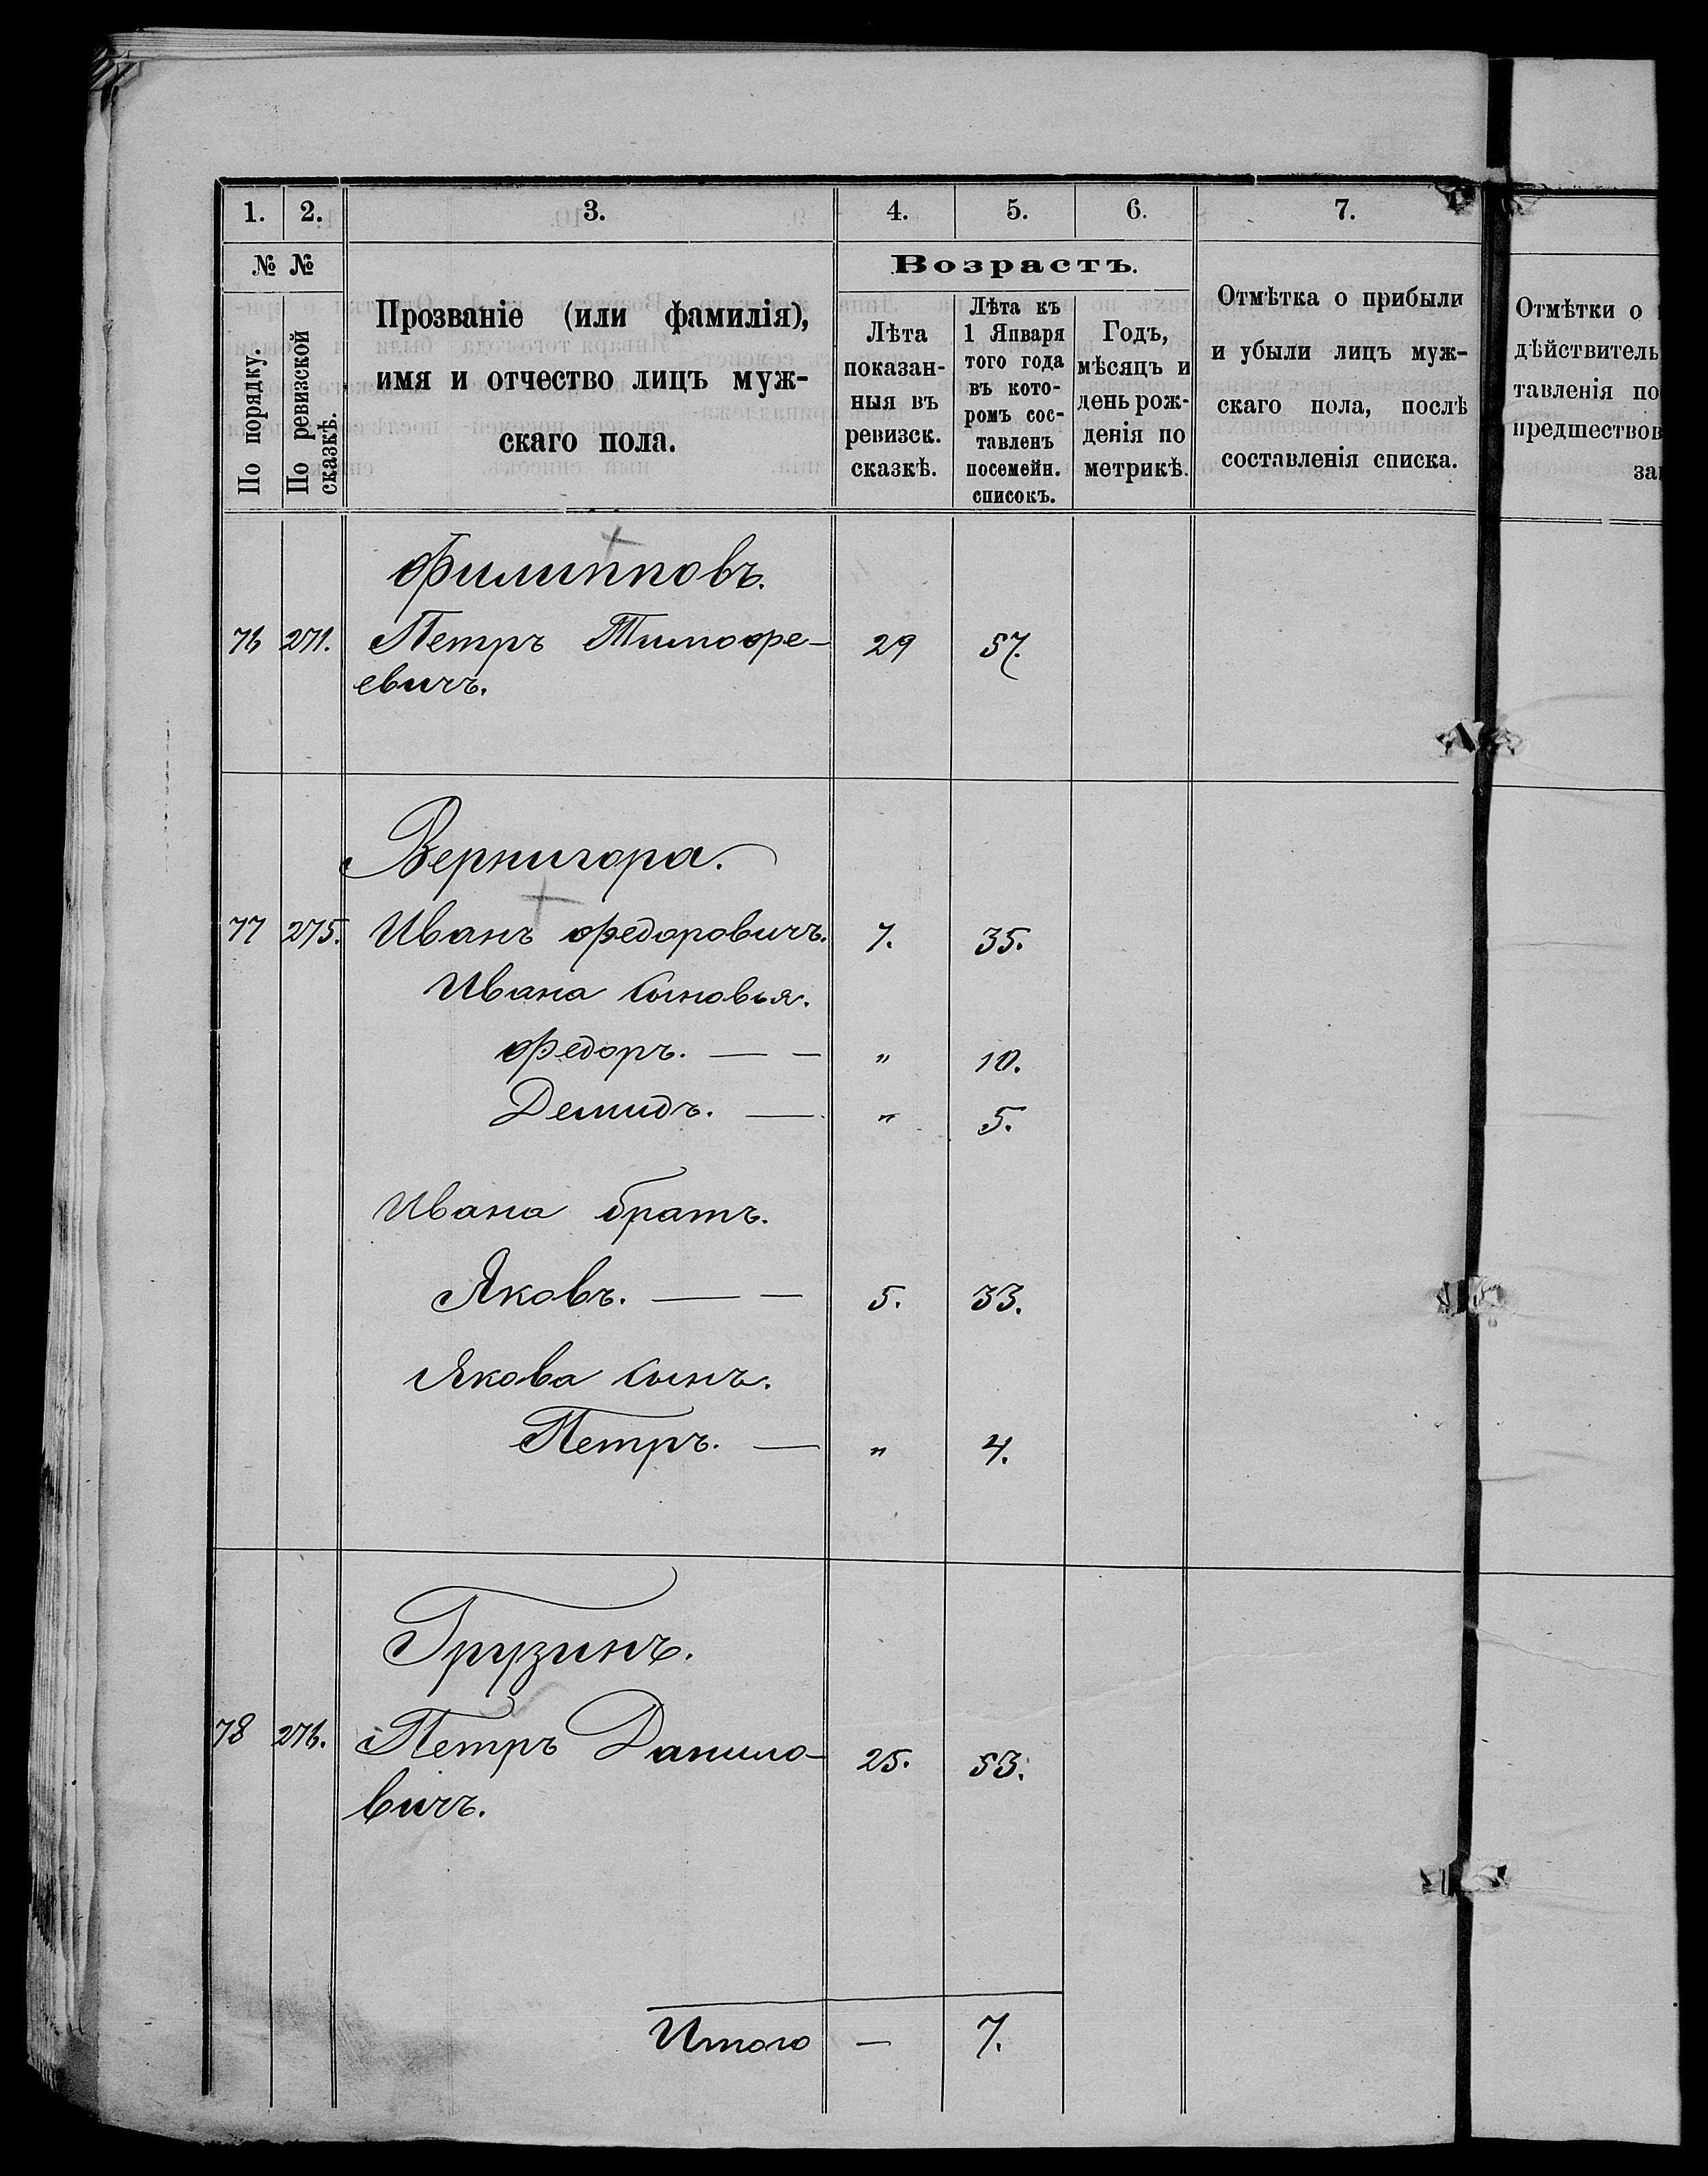 1. 2. 3. 4. 5. 6. 7.
№ №
По порядку.
По ревизской сказкѣ.
Прозваніе (или фамилія),
имя и отчество лицъ муж-
скаго пола.
Возрастъ.
Лѣта
показан-
ныя въ
ревизск.
сказкѣ.
Лѣта къ
1 Января
того года
въ кото-
ромъ сос-
тавленъ
посемейн.
списокъ.
Годъ,
мѣсяцъ и
день рож-
денія по
метрикѣ.
Отмѣтка о прибыли
и убыли лицъ муж-
скаго пола, послѣ
составленія списка.
Отмѣтки о
дѣйствитель
тавленія по
предшествов
за
Филипповъ.
76 271. Петръ Тимофе- 29 57.
евичъ.
Вернигора.
77 275. Иванъ Федоровичъ. 7. 35.
Ивана сыновья.
Федоръ. — — " 10.
Демидъ. — " 5.
Ивана братъ.
Яковъ. — — 5. 33.
Якова сынъ.
Петръ. — " 4.
Грузинъ.
78 276. Петръ Данило- 25. 53.
вичъ.
Итого — 7.